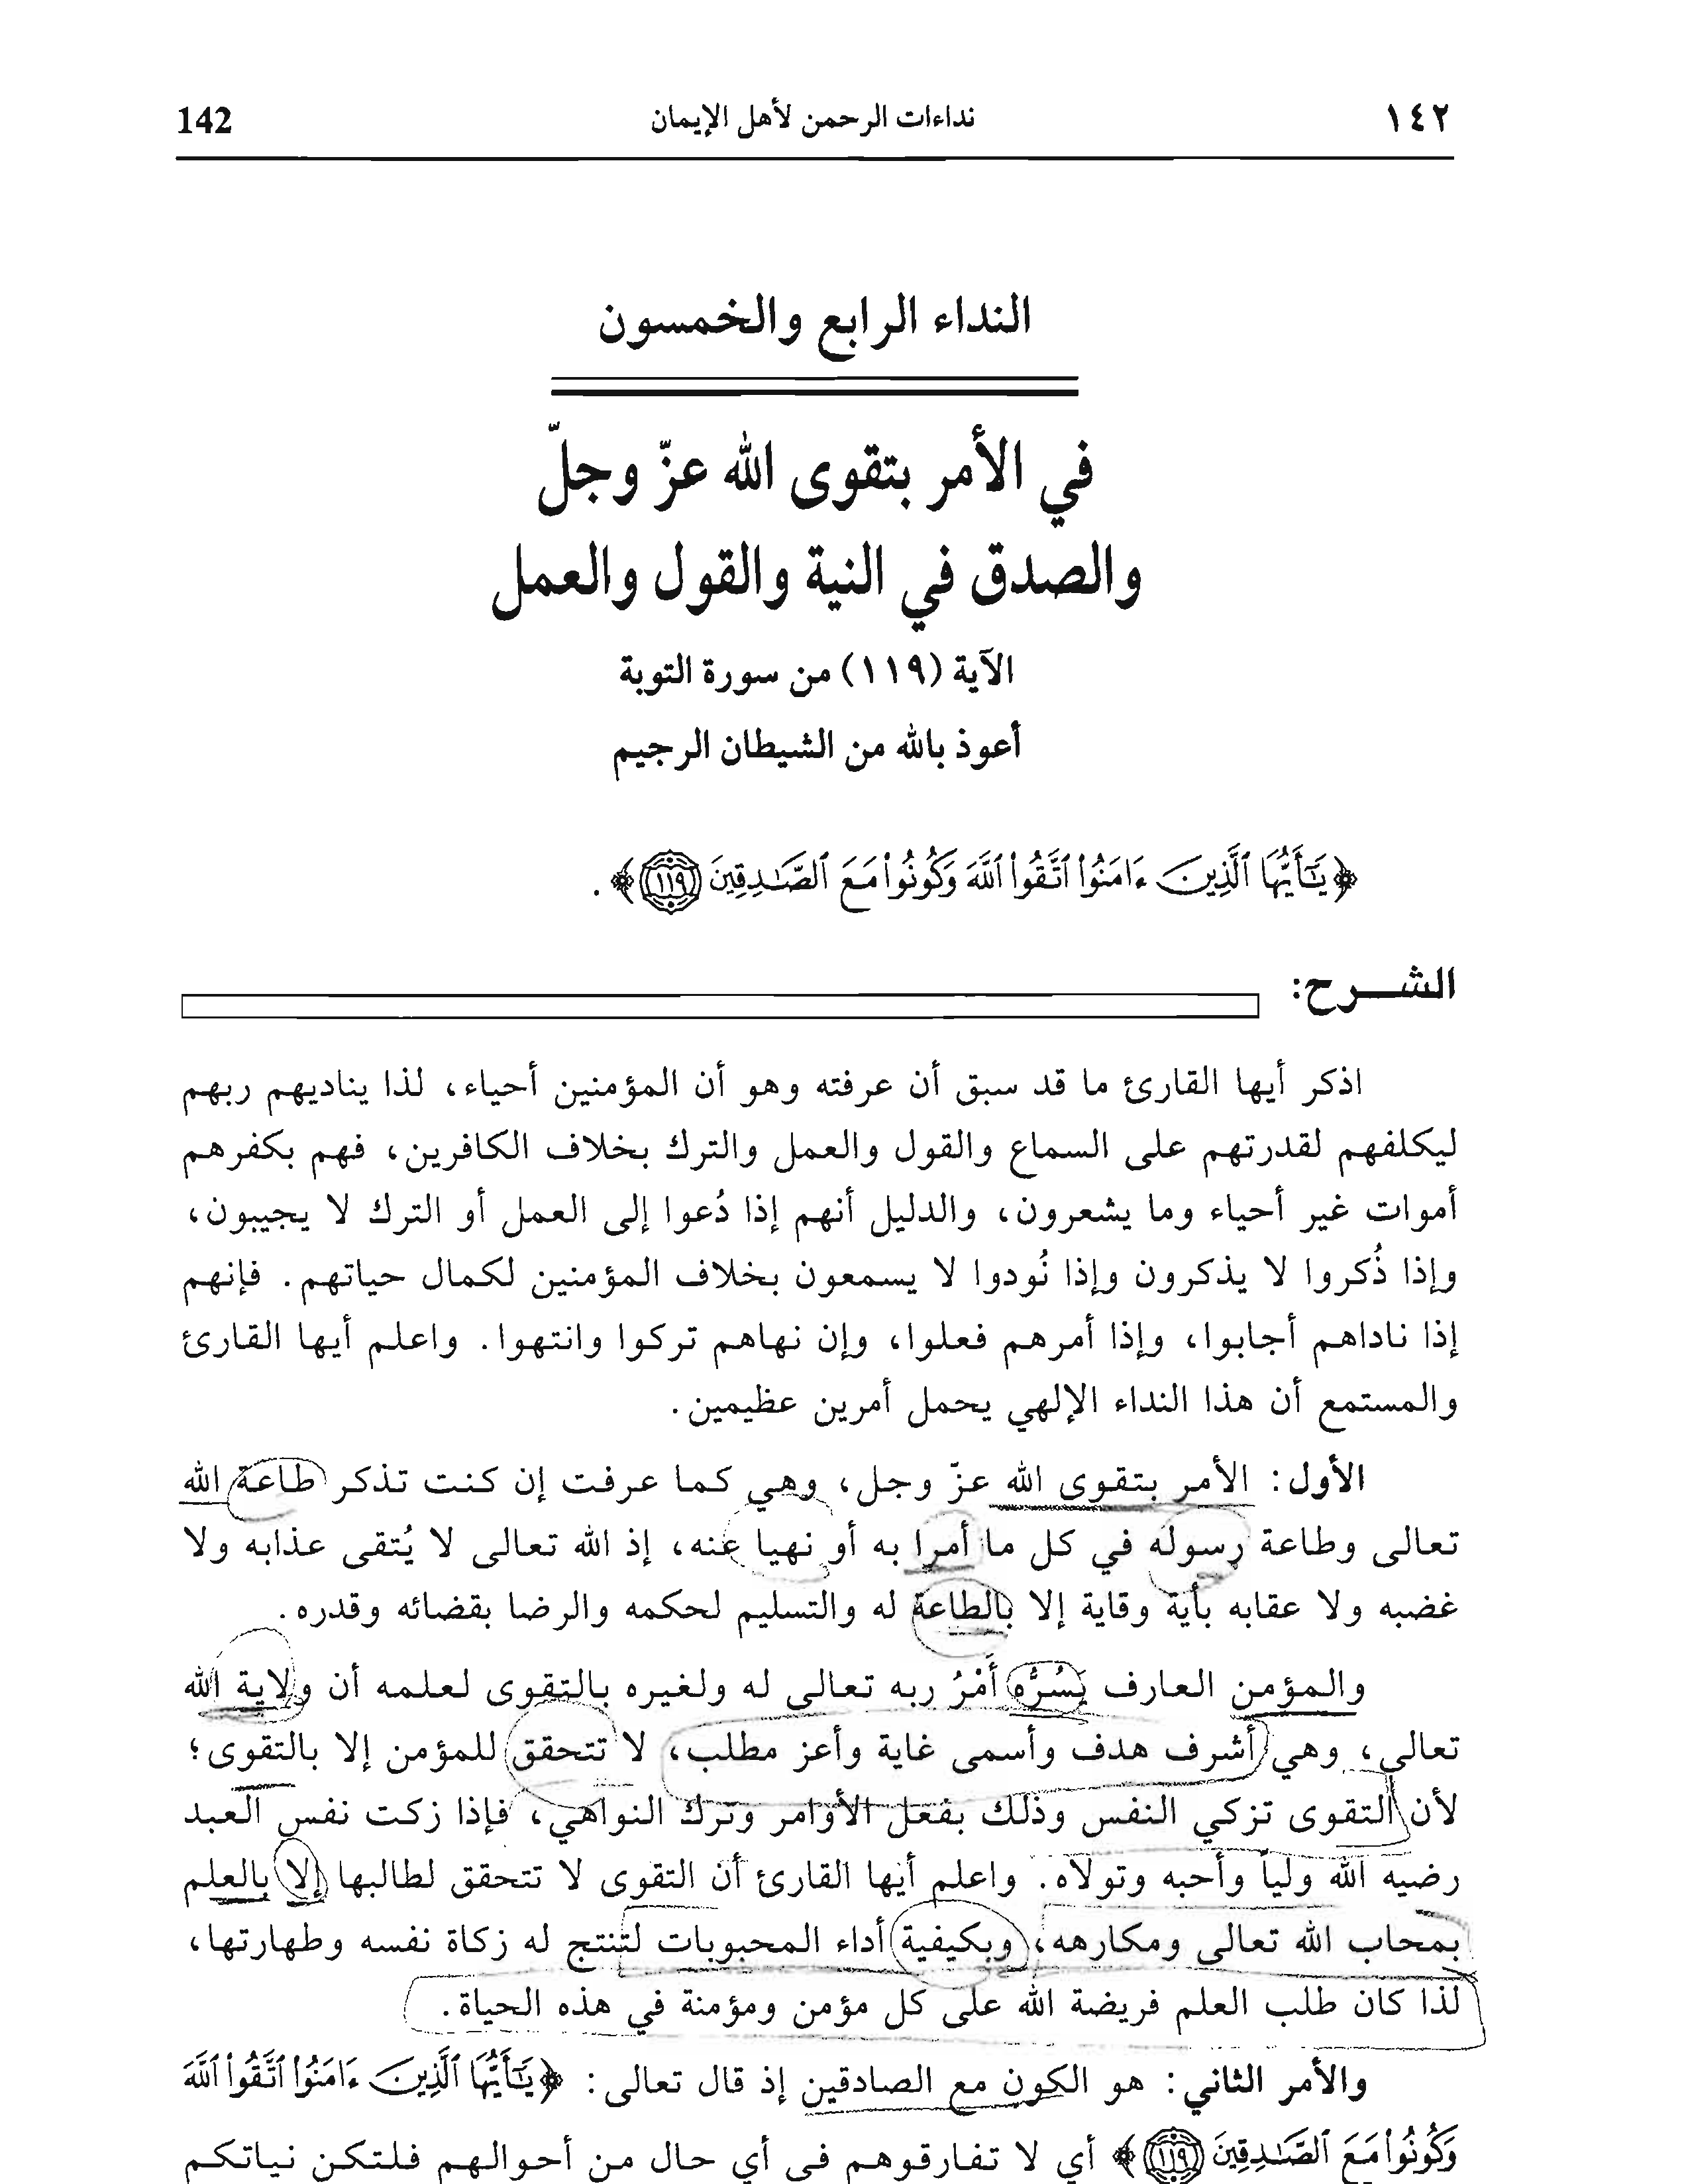 142 نداءات الرحمن لأهل الإيمان ١٤٢
النداء الرابع والخمسون
في الأمر بتقوى الله عزّ وجلّ
والصدق في النية والقول والعمل
الآية (١١٩) من سورة التوبة
أعوذ بالله من الشيطان الرجيم
﴿يَٰٓأَيُّهَا ٱلَّذِينَ ءَامَنُوا۟ ٱتَّقُوا۟ ٱللَّهَ وَكُونُوا۟ مَعَ ٱلصَّٰدِقِينَ ١١٩﴾.
الشـــرح:
اذكر أيها القارئ ما قد سبق أن عرفته وهو أن المؤمنين أحياء، لذا يناديهم ربهم
ليكلفهم لقدرتهم على السماع والقول والعمل والترك بخلاف الكافرين، فهم بكفرهم
أموات غير أحياء وما يشعرون، والدليل أنهم إذا دُعوا إلى العمل أو الترك لا يجيبون،
وإذا ذُكروا لا يذكرون وإذا نُودوا لا يسمعون بخلاف المؤمنين لكمال حياتهم. فإنهم
إذا ناداهم أجابوا، وإذا أمرهم فعلوا، وإن نهاهم تركوا وانتهوا. واعلم أيها القارئ
والمستمع أن هذا النداء الإلهي يحمل أمرين عظيمين.
الأول: الأمر بتقوى الله عزّ وجل، وهي كما عرفت إن كنت تذكر طاعة الله
تعالى وطاعة رسوله في كل ما أمرا به أو نهيا عنه، إذ الله تعالى لا يُتقى عذابه ولا
غضبه ولا عقابه بأية وقاية إلا بالطاعة له والتسليم لحكمه والرضا بقضائه وقدره.
والمؤمن العارف يَسُرُّه أَمْرُ ربه تعالى له ولغيره بالتقوى لعلمه أن ولاية الله
تعالى، وهي أشرف هدف وأسمى غاية وأعز مطلب، لا تتحقق للمؤمن إلا بالتقوى؛
لأن التقوى تزكي النفس وذلك بفعل الأوامر وترك النواهي، فإذا زكت نفس العبد
رضيه الله ولياً وأحبه وتولاه. واعلم أيها القارئ أن التقوى لا تتحقق لطالبها إلا بالعلم
بمحاب الله تعالى ومكارهه، وبكيفية أداء المحبوبات لتنتج له زكاة نفسه وطهارتها،
لذا كان طلب العلم فريضة الله على كل مؤمن ومؤمنة في هذه الحياة.
والأمر الثاني: هو الكون مع الصادقين إذ قال تعالى: ﴿يَٰٓأَيُّهَا ٱلَّذِينَ ءَامَنُوا۟ ٱتَّقُوا۟ ٱللَّهَ
وَكُونُوا۟ مَعَ ٱلصَّٰدِقِينَ ١١٩﴾ أي لا تفارقوهم في أي حال من أحوالهم فلتكن نياتكم